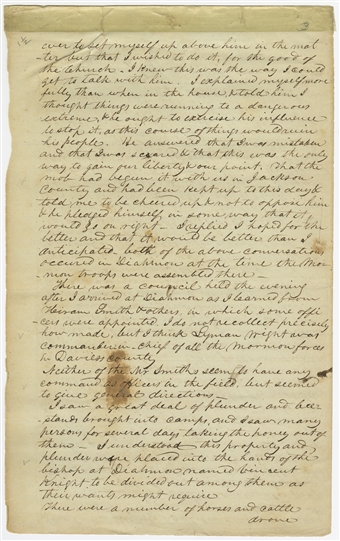 3
ever to set myself up above him in the mat
ter but that I wished to do it, for the good of
the Church. I knew this was the way I could
get to talk with him. I explained myself more
fully than when in the house, & told him I
thought things were running to a dangerous
extreme, & he ought to exercise his influence
to stop it, as this course of things would ruin
his people. He answered that I was mistaken
and that I was scared & that this was the only
way to gain our liberty & our point. That the
mob had begun it with us in Jackson
County and had been kept up to this day &
told me to be cheered up & not to oppose him
& he pledged himself in some way that it
would go on right — I replied I hoped for the
better and that it would be better than I
anticipated, both of the above conversations
occured in Diahmon at the time the Mor
mon troops were assembled there —
There was a council held the evening
after I arrived at Diahmon as I learned from
Hiram Smith & others, in which some offi
cers were appointed. I do not recollect precisely
how made, but I think Lyman Wight was
commander in Chief of all the Mormon forces
in Daviess County
Neither of the Mr Smiths seem to have any
command as officers in the field, but seemed
to give general directions —
I saw a great deal of plunder and bee-
stands brought into camp, and I saw many
persons for several days taking the honey out of
them — I understood this property and
plunder were placed into the hands of the
bishop at Diahmon named Vincent
Knight to be divided out among them as
their wants might require
There were a number of horses and cattle
drove